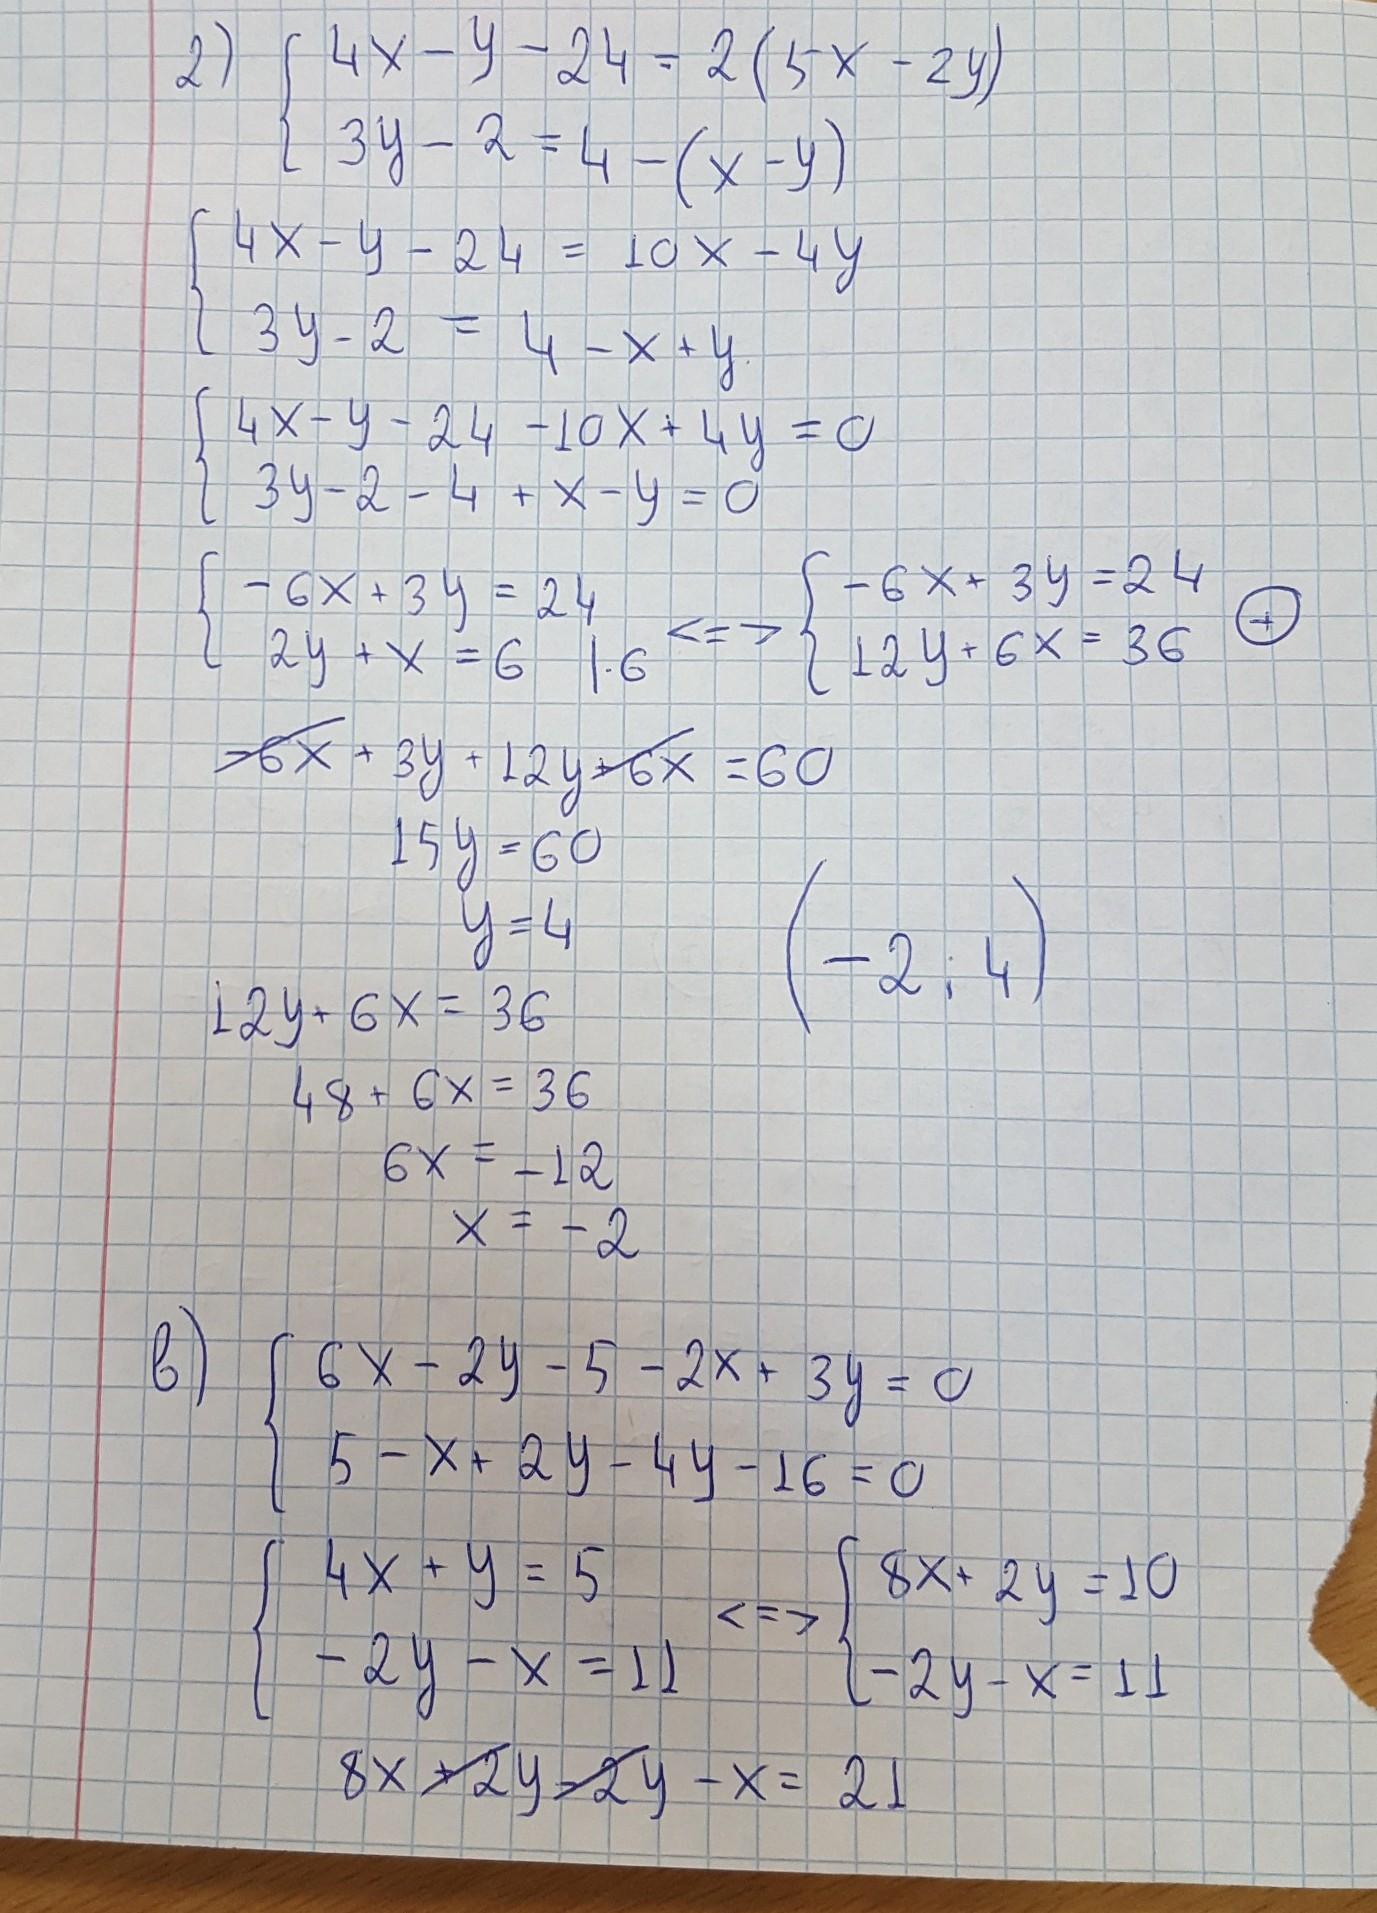 2) { 4x - y - 24 = 2(5x - 2y)
3y - 2 = 4 - (x - y)
{ 4x - y - 24 = 10x - 4y
3y - 2 = 4 - x + y
{ 4x - y - 24 - 10x + 4y = 0
3y - 2 - 4 + x - y = 0
{ -6x + 3y = 24 <=> { -6x + 3y = 24 (+)
2y + x = 6 |·6 12y + 6x = 36
-6x + 3y + 12y + 6x = 60
15y = 60
y = 4
(-2; 4)
12y + 6x = 36
48 + 6x = 36
6x = -12
x = -2
в) { 6x - 2y - 5 - 2x + 3y = 0
5 - x + 2y - 4y - 16 = 0
{ 4x + y = 5 <=> { 8x + 2y = 10
-2y - x = 11 -2y - x = 11
8x + 2y - 2y - x = 21